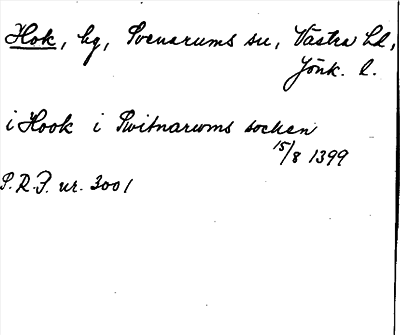 Hok, hg, Svenarums sn, Västra hd,
Jönk. l.
i Hook i Switnarwms sochen
15/8 1399
S.R.P. nr. 3001